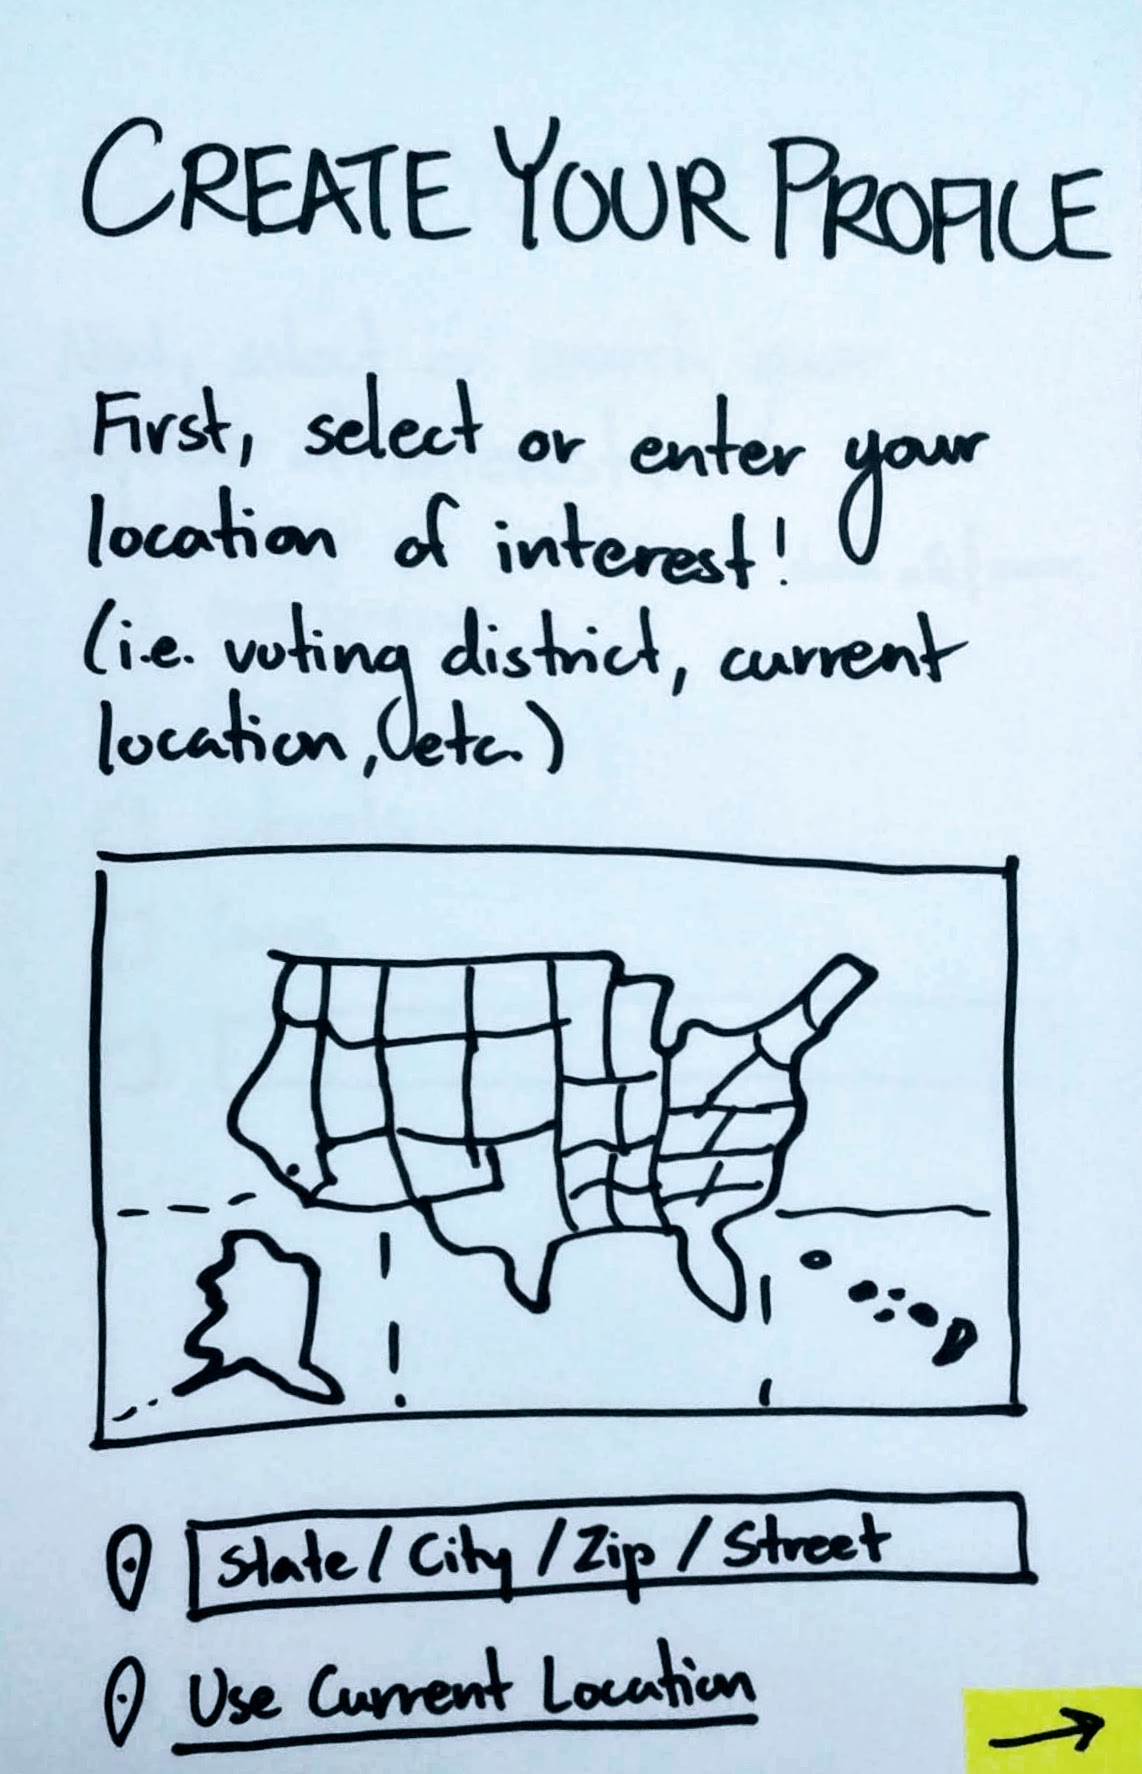 CREATE YOUR PROFILE
First, select or enter your
location of interest!
(i.e. voting district, current
location, etc.)
State / City / Zip / Street
Use Current Location
→